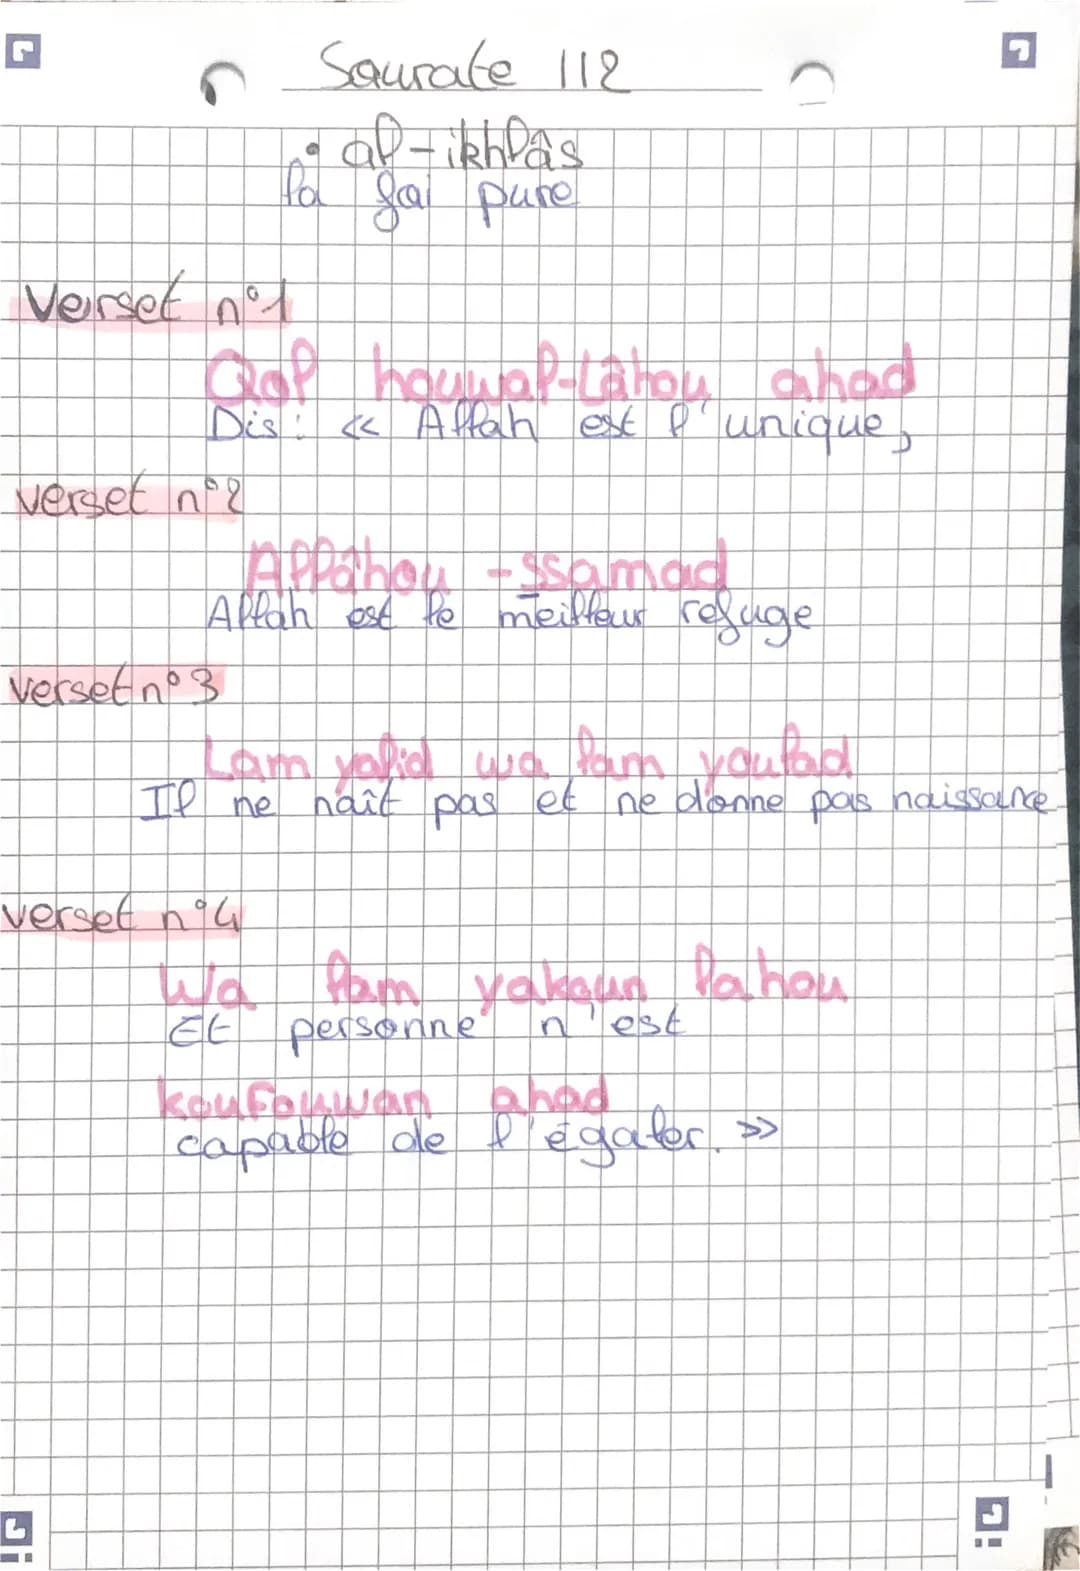 Sourate 112
• al-ikhlâs
la foi pure
Verset n°1
Qol houwal-Lâhou ahad
Dis : « Allah est l'unique,
verset n°2
Allâhou -ssamad
Allah est le meilleur refuge
verset n°3
Lam yalid wa lam youlad
Il ne naît pas et ne donne pas naissance
verset n°4
Wa lam yakoun lahou
Et personne n'est
koufouwan ahad
capable de l'égaler. »